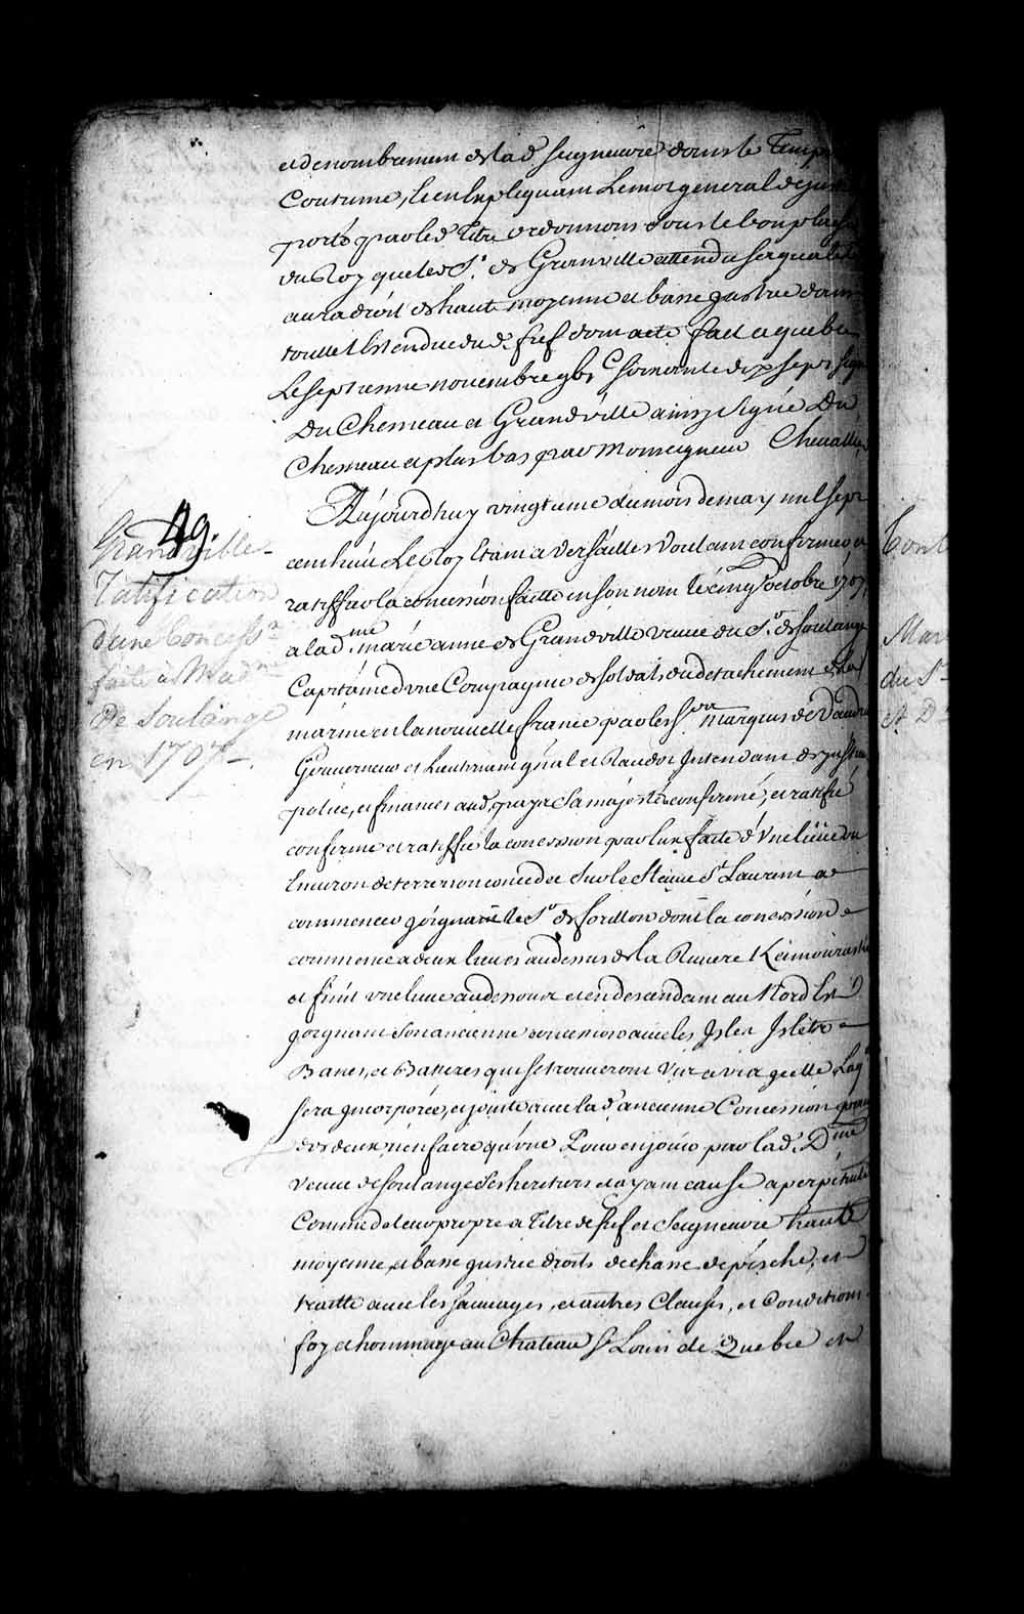 et denombrement de lad. seigneurie dans le Temps
Coutume, et en Expliquant Le mot general de jus
porté par led. Titre ordonnons sous le bon plaisir
du Roy que led. Sr. de Granville attendu sa qualité
aura droit de haute moyenne et basse justice dans
toutte l'Estendue dud. fief dont acte fait a quebec
Le septiesme novembre gbic soixante dix sept signé
Du Chesneau et Grandville ainsy signé Du
Chesneau et plus bas par Monseigneur Chevallier
Aujourd'huy vingtieme du mois de may mil sept
cent huit Le Roy Etant a Versailles voulant confirmer et
ratiffier la concession faitte en son nom le cinq octobre 1707
a la de. me marie anne de Grandville veuve du Sr. de soulange
Capitaine d'une Compagnie de soldats du detachement de la
marine en la nouvelle france par les Srs marquis de Vaudreuil
Gouverneur et Lieutenant gñal et Raudot Intendant de justice
police, et finances aud. pays Sa majesté a confirmé, et ratifié
confirme et ratiffie la concession par Eux faite d'Une lieüe ou
Environ de terre non concedée sur le fleuve St. Laurent a
commencer joignant le Sr. de forillon dont la concession
commence a deux lieues au dessus de la Riviere Kamouraska
et finit une lieue au dessous et en descendant au Nord Est
joignant son ancienne concession avec les Isles Islets
Bancs, et Batures qui se trouveront vis a vis quelle Laq.
sera jncorporée, et jointe avec lad. ancienne Concession pour
des deux n'en faire qu'une Pour en jouir par lad. Dme
veuve de soulange ses heritiers et ayant cause a perpetuité
Comme de leur propre a Titre de fief et Seigneurie haute
moyenne, et basse justice droits de chasse de pesche, et
traitte avec les sauvages, et autres Clauses, et Conditions
foy et hommage au Chateau St Louis de Quebec et
49
Grandville
Ratification
d'une Concessn
faite à Made
De Soulange
en 1707
Mar
du Sr